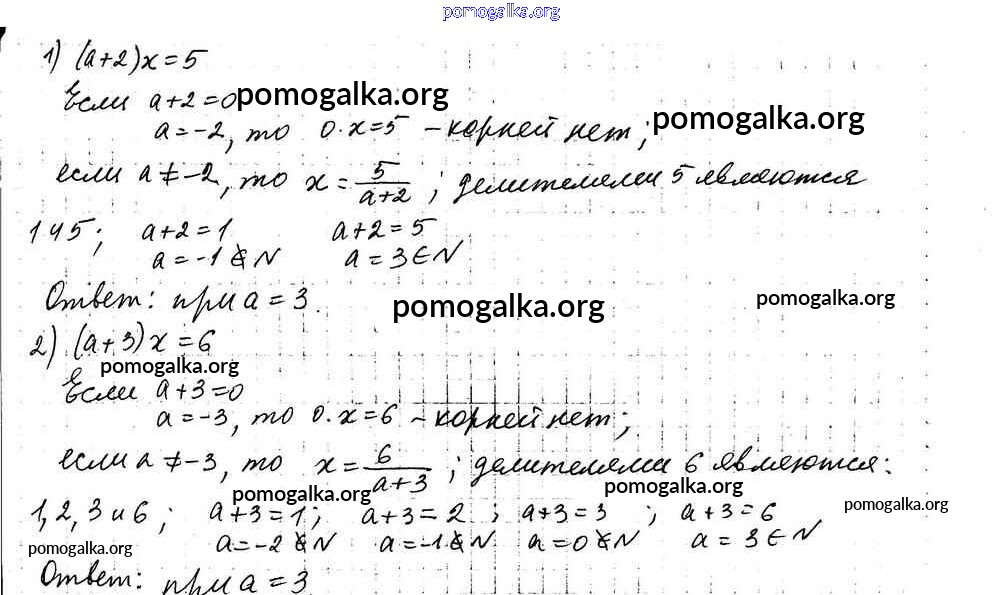 pomogalka.org
1) (a+2)x=5
Если a+2=0 pomogalka.org
a=-2, то 0·x=5 - корней нет; pomogalka.org
если a≠-2, то x=5/(a+2); делителями 5 являются
1 и 5; a+2=1 a+2=5
a=-1∉N a=3∈N
Ответ: при a=3. pomogalka.org pomogalka.org
2) (a+3)x=6
pomogalka.org
Если a+3=0
a=-3, то 0·x=6 - корней нет;
если a≠-3, то x=6/(a+3); делителями 6 являются:
pomogalka.org pomogalka.org pomogalka.org
1, 2, 3 и 6; a+3=1; a+3=2; a+3=3; a+3=6
a=-2∉N a=-1∉N a=0∉N a=3∈N
pomogalka.org
Ответ: при a=3